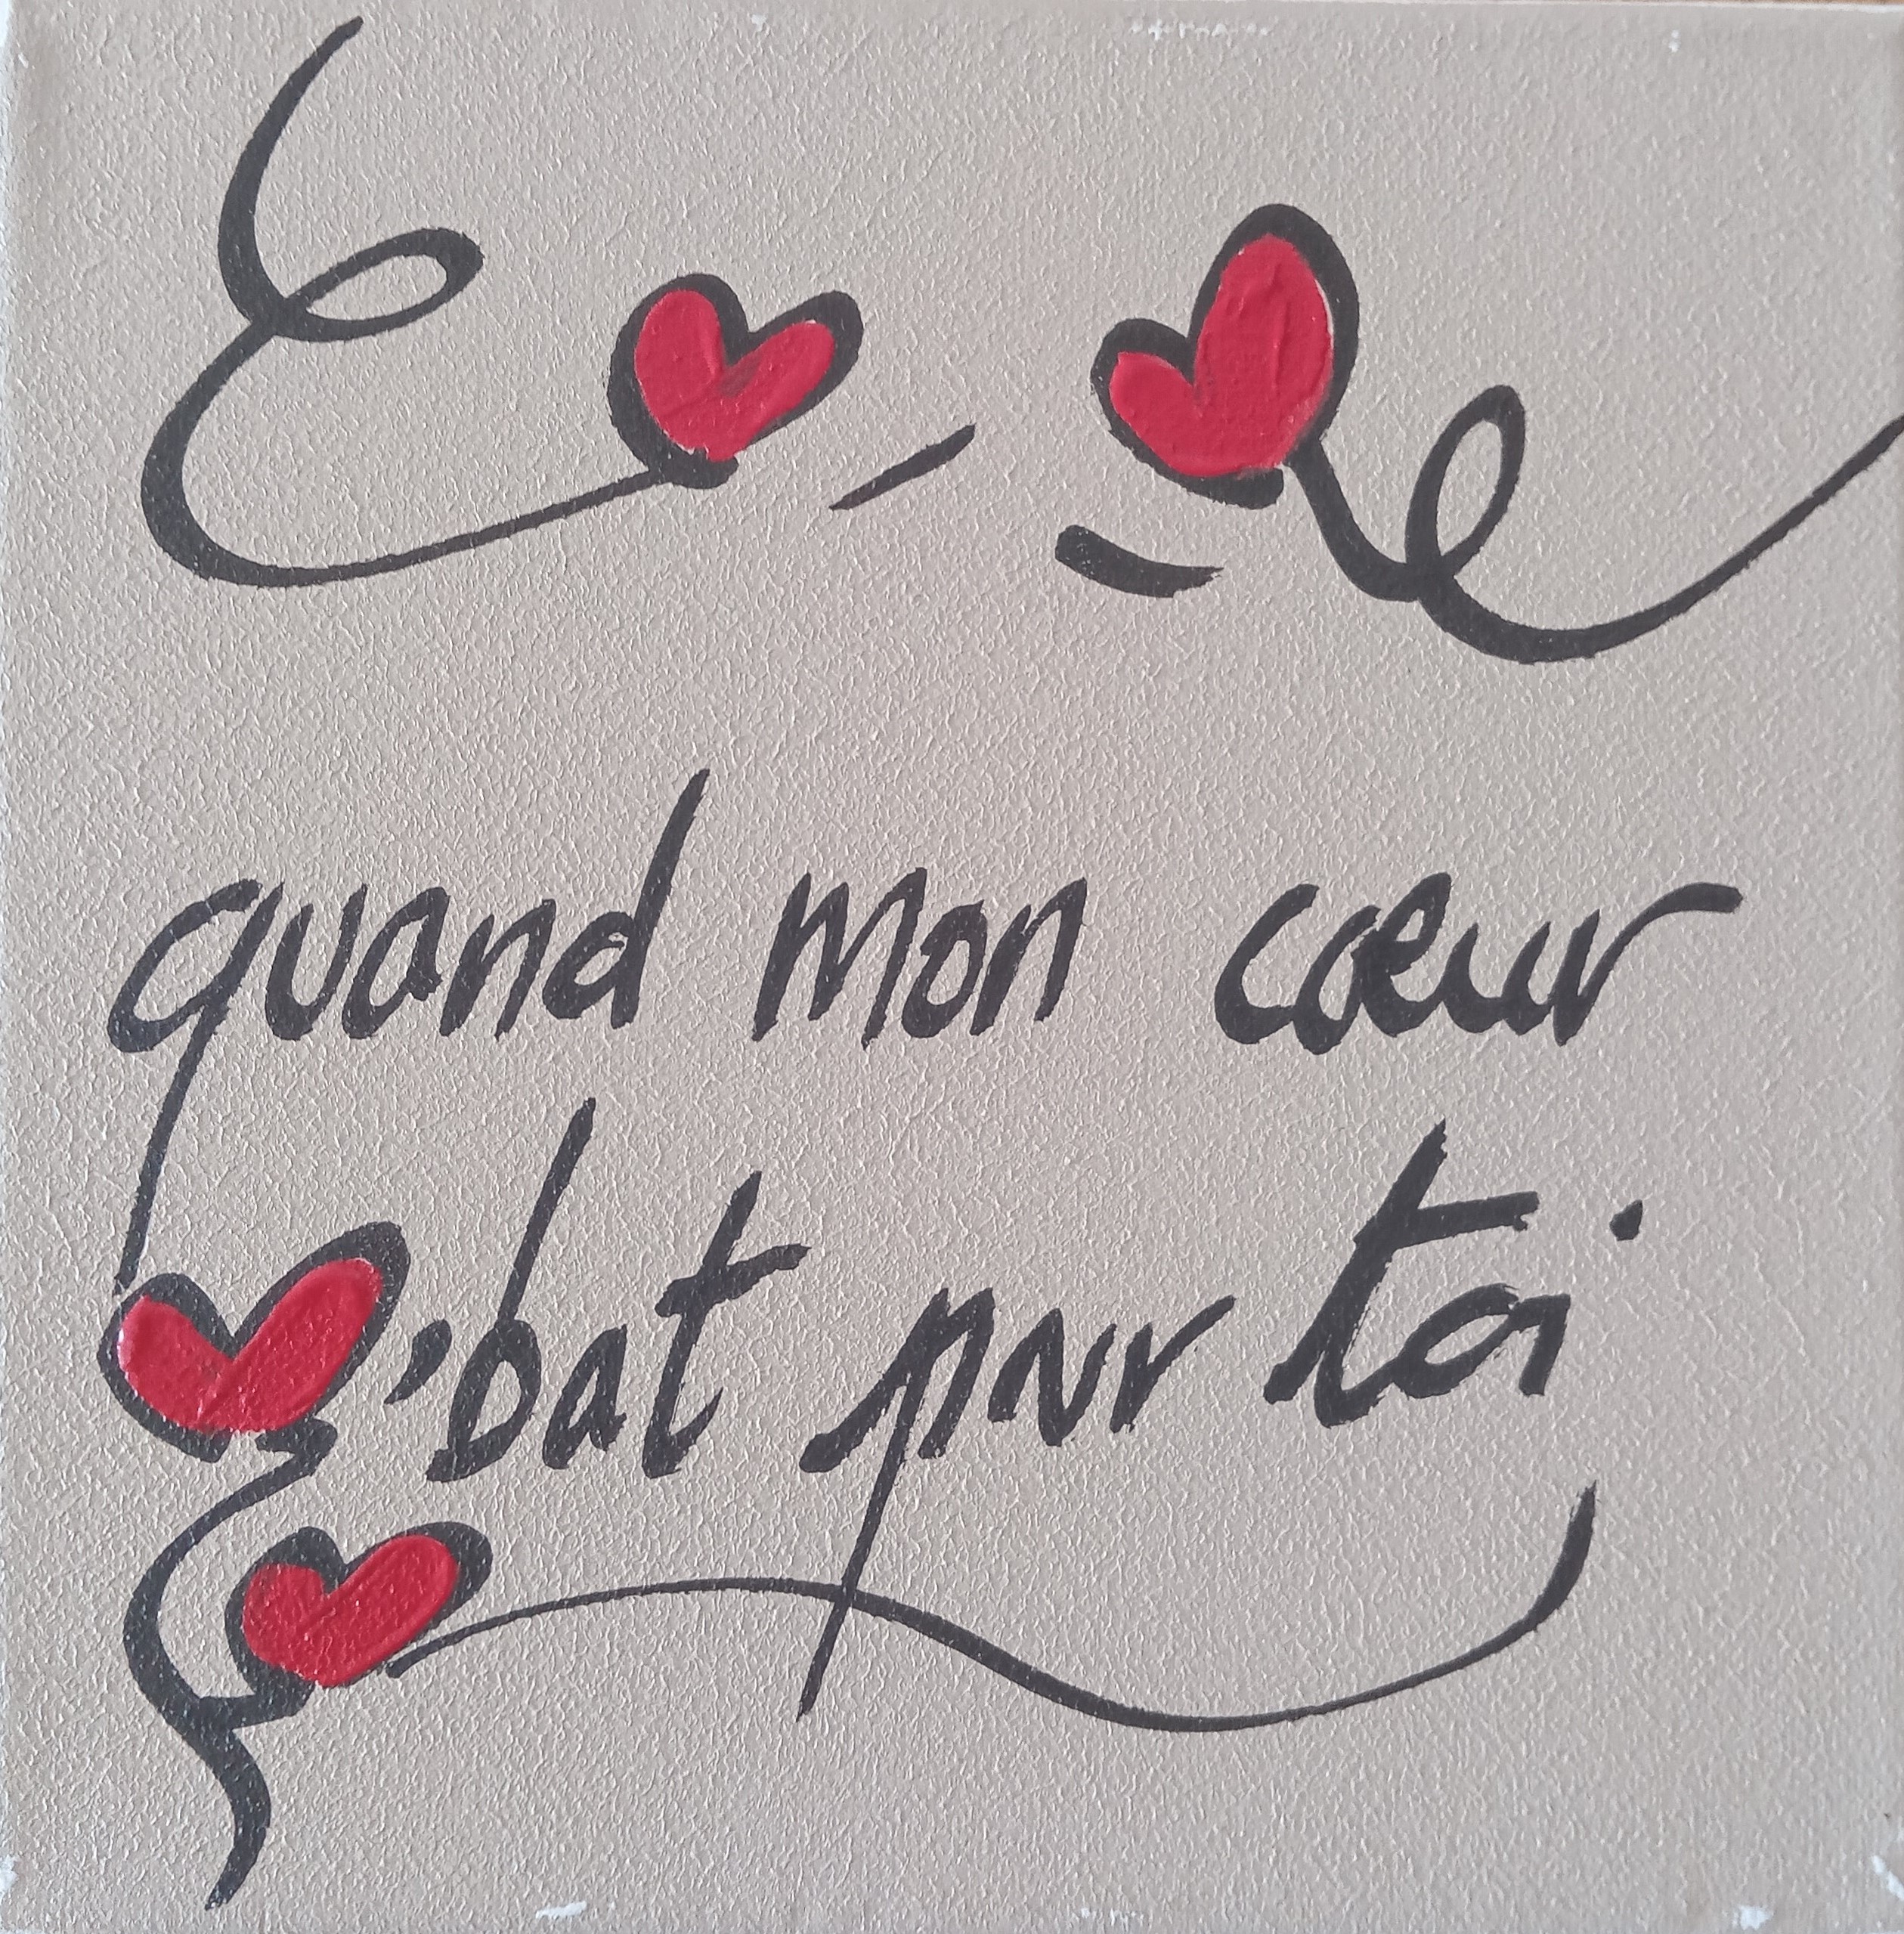 quand mon cœur
bat pour toi